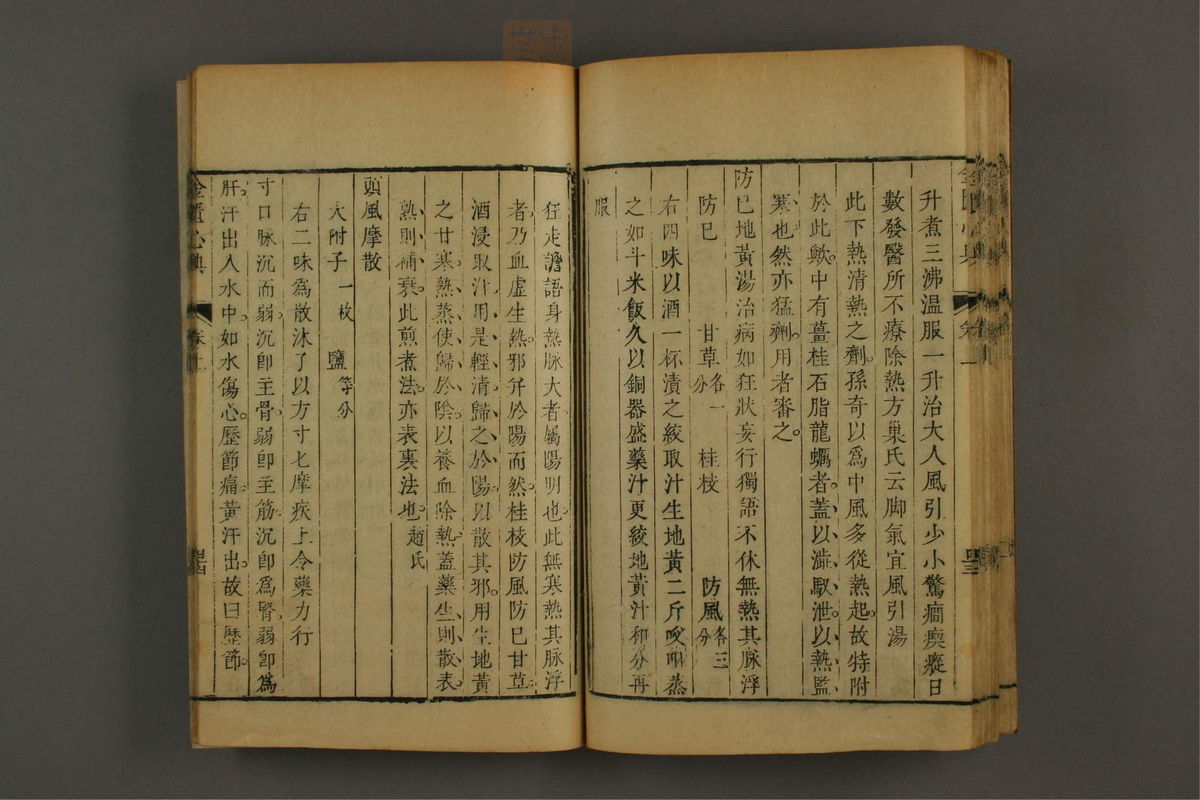 升煮三沸温服一升治大人風引少小驚癎瘈瘲日
數發醫所不療除熱方巢氏云脚氣宜風引湯
此下熱清熱之劑孫奇以爲中風多從熱起故特附
於此歟中有薑桂石脂龍蠣者蓋以澁馭泄以熱監
寒也然亦猛劑用者審之
防已地黃湯治病如狂狀妄行獨語不休無熱其脉浮
防已 甘草各一分 桂枝 防風各三分
右四味以酒一杯漬之絞取汁生地黃二斤㕮咀蒸
之如斗米飯久以銅器盛藥汁更絞地黃汁和分再
服
狂走譫語身熱脉大者屬陽明也此無寒熱其脉浮
者乃血虛生熱邪幷於陽而然桂枝防風防已甘草
酒浸取汁用是輕清歸之於陽以散其邪用生地黃
之甘寒熟蒸使歸於陰以養血除熱蓋藥生則散表
熟則補衰此煎煮法亦表裏法也趙氏
頭風摩散
大附子一枚 鹽等分
右二味爲散沐了以方寸匕摩疾上令藥力行
寸口脉沉而弱沉卽主骨弱卽主筋沉卽爲腎弱卽爲
肝汗出入水中如水傷心歷節痛黃汗出故曰歷節
金匱心典 卷上